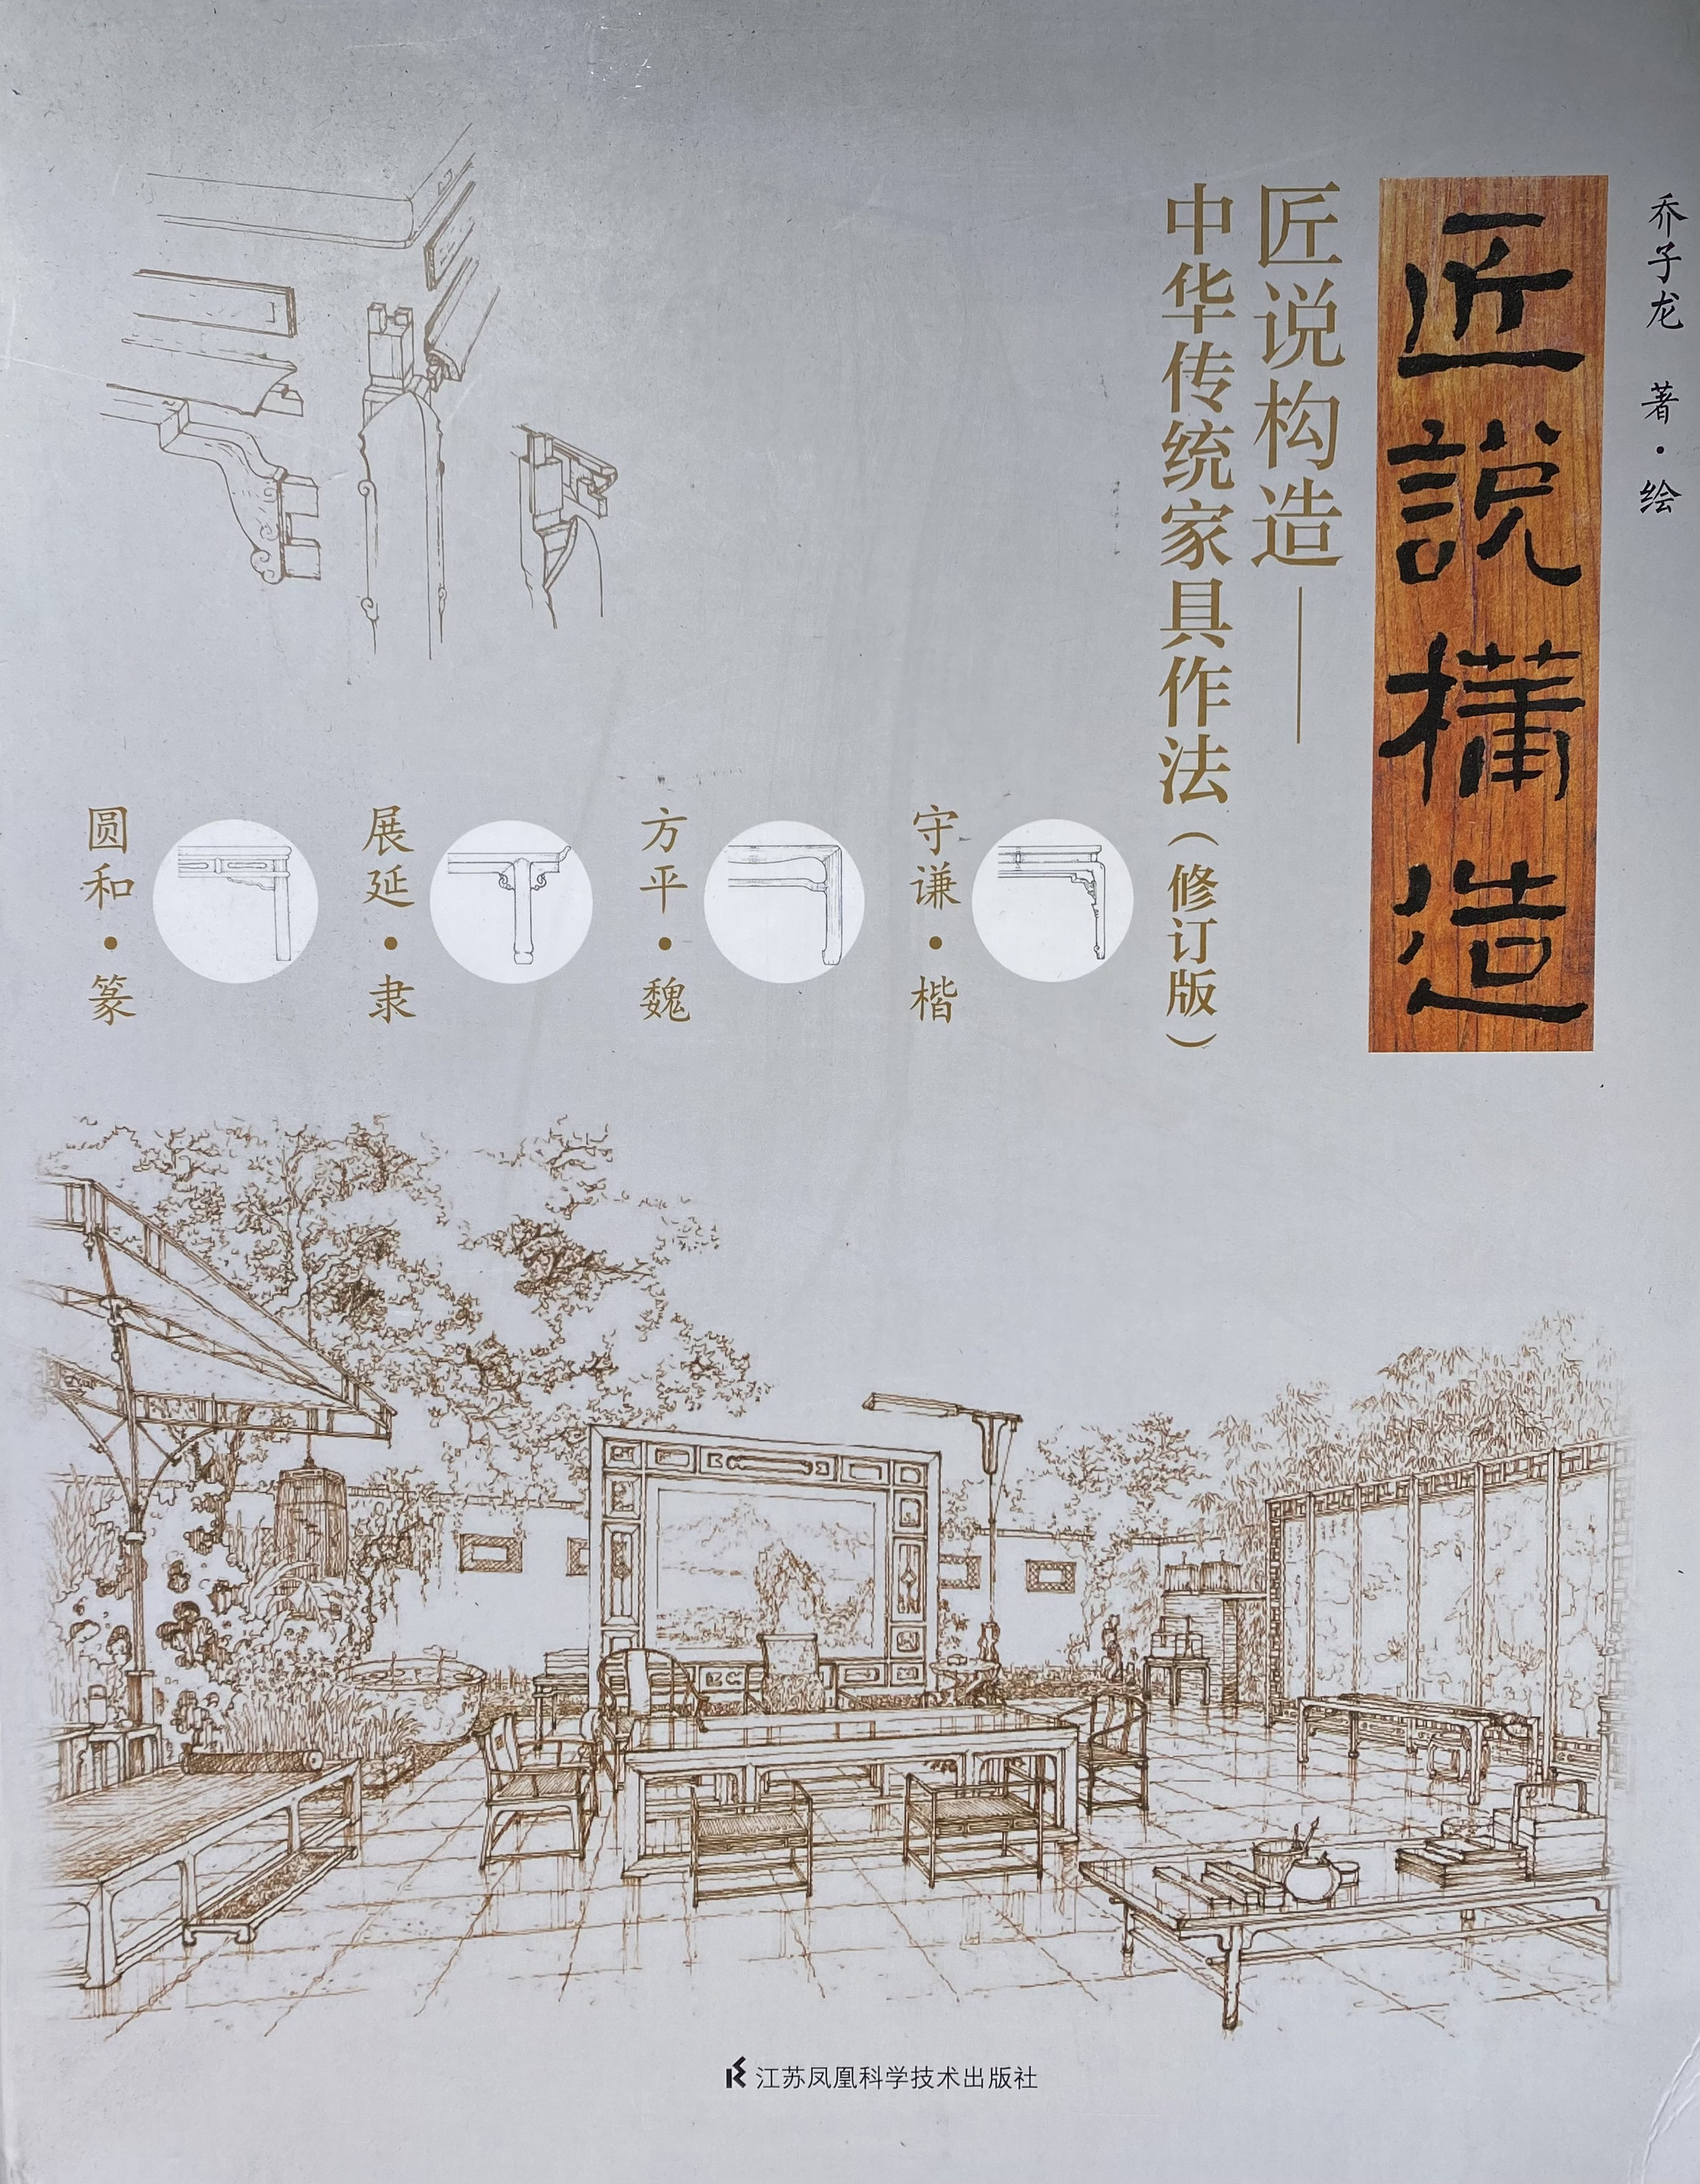 乔子龙 著·绘
匠說構造
匠说构造——
中华传统家具作法（修订版）
守谦·楷
方平·魏
展延·隶
圆和·篆
江苏凤凰科学技术出版社